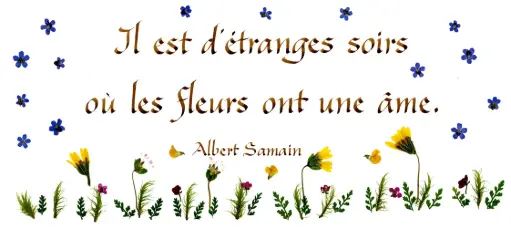 Il est d'étranges soirs
où les fleurs ont une âme.
Albert Samain